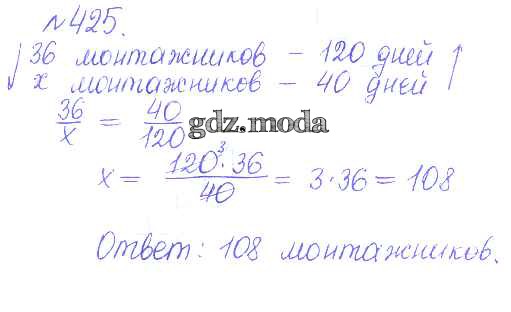 №425.
↓ 36 монтажников – 120 дней ↑
х монтажников – 40 дней
36/х = 40/120
gdz.moda
х = 120³·36/40 = 3·36 = 108
Ответ: 108 монтажников.